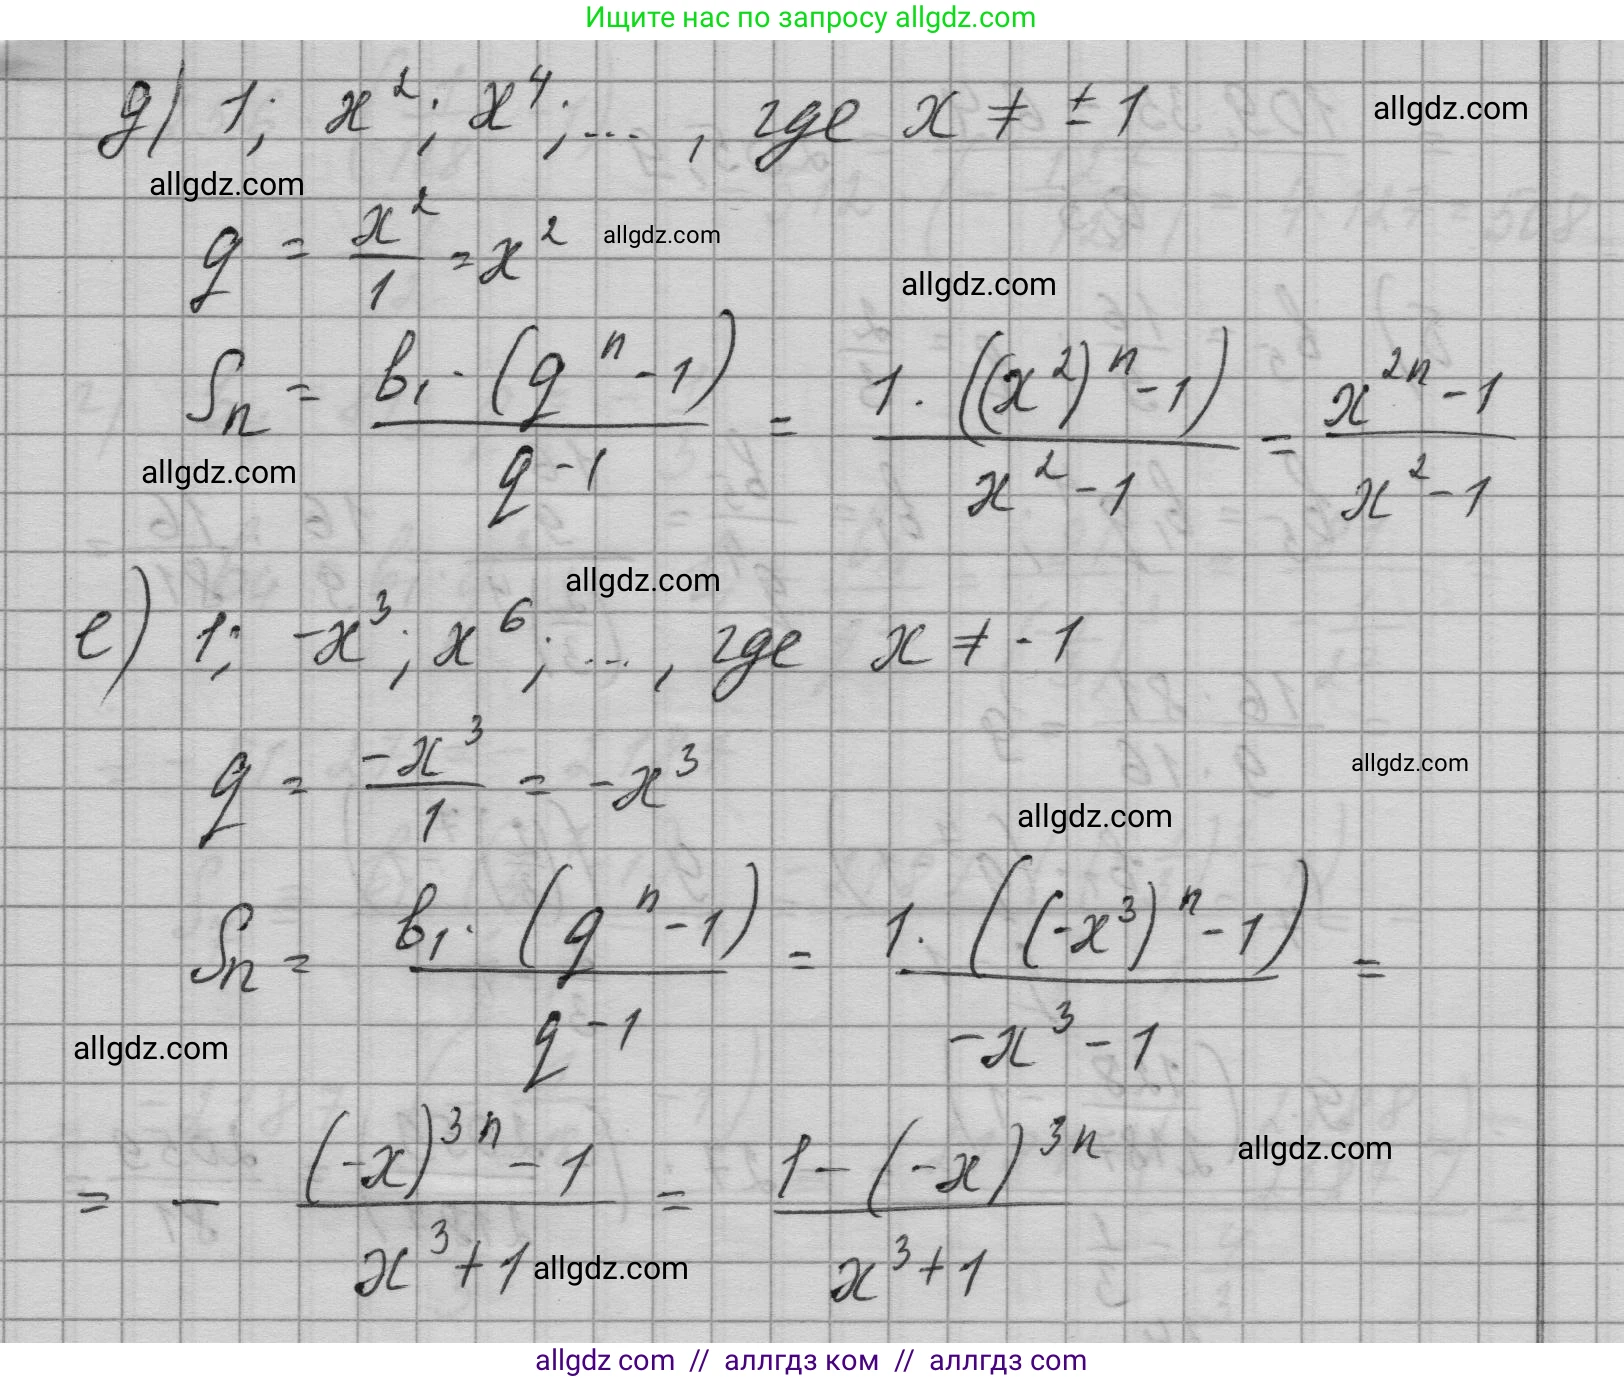 Ищите нас по запросу allgdz.com
д) 1; x²; x⁴; ... , где x ≠ ± 1
allgdz.com
allgdz.com
q = x²/1 = x²
allgdz.com
allgdz.com
Sn = b₁ · (qⁿ - 1) / (q - 1) = 1 · ((x²)ⁿ - 1) / (x² - 1) = (x²ⁿ - 1) / (x² - 1)
allgdz.com
allgdz.com
е) 1; -x³; x⁶; ... , где x ≠ -1
q = -x³/1 = -x³
allgdz.com
allgdz.com
Sn = b₁ · (qⁿ - 1) / (q - 1) = 1 · ((-x³)ⁿ - 1) / (-x³ - 1) =
allgdz.com
= - ((-x)³ⁿ - 1) / (x³ + 1) = (1 - (-x)³ⁿ) / (x³ + 1)
allgdz.com
allgdz.com
allgdz com // аллгдз ком // аллгдз com